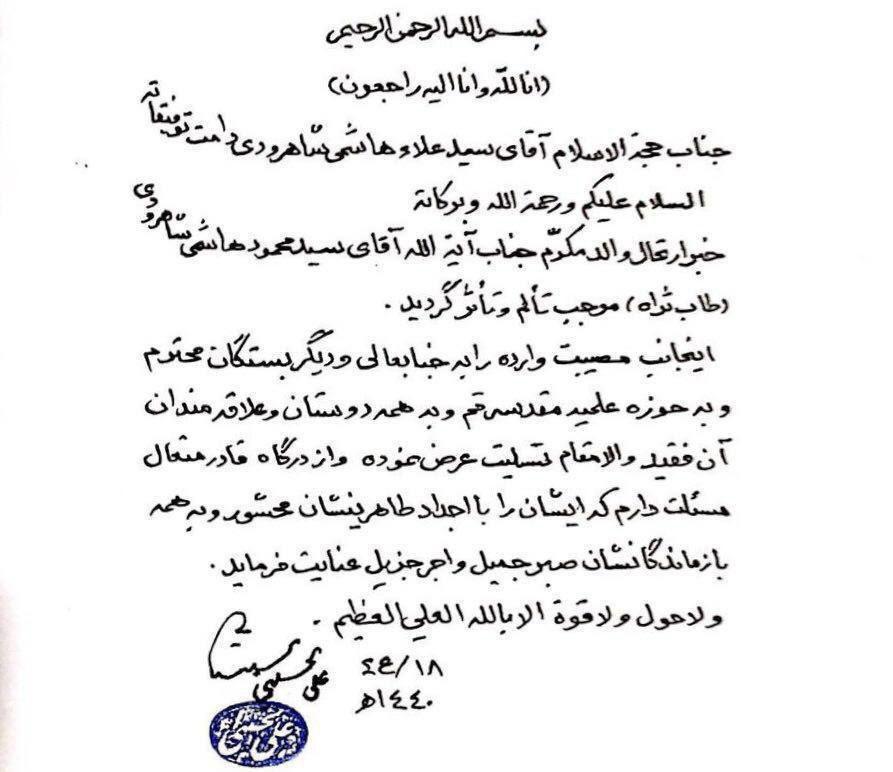 بسم الله الرحمن الرحیم
(انا لله و انا الیه راجعون)
جناب حجة الاسلام آقای سید علاء هاشمی شاهرودی دامت توفیقاته
السلام علیکم ورحمة الله وبرکاته
خبر ارتحال والد مکرّم جناب آیة الله آقای سید محمود هاشمی شاهرودی
(طاب ثراه) موجب تألم و تأثر گردید.
اینجانب مصیبت وارده را به جنابعالی و دیگر بستگان محترم
و به حوزه علمیه مقدسه قم و به همه دوستان و علاقه مندان
آن فقید والامقام تسلیت عرض نموده و از درگاه قادر متعال
مسئلت دارم که ایشان را با اجداد طاهرینشان محشور و به همه
بازماندگانشان صبر جمیل و اجر جزیل عنایت فرماید.
ولاحول ولاقوة الا بالله العلي العظیم.
١٨/ع٢
١٤٤٠ه
علی الحسینی السیستانی